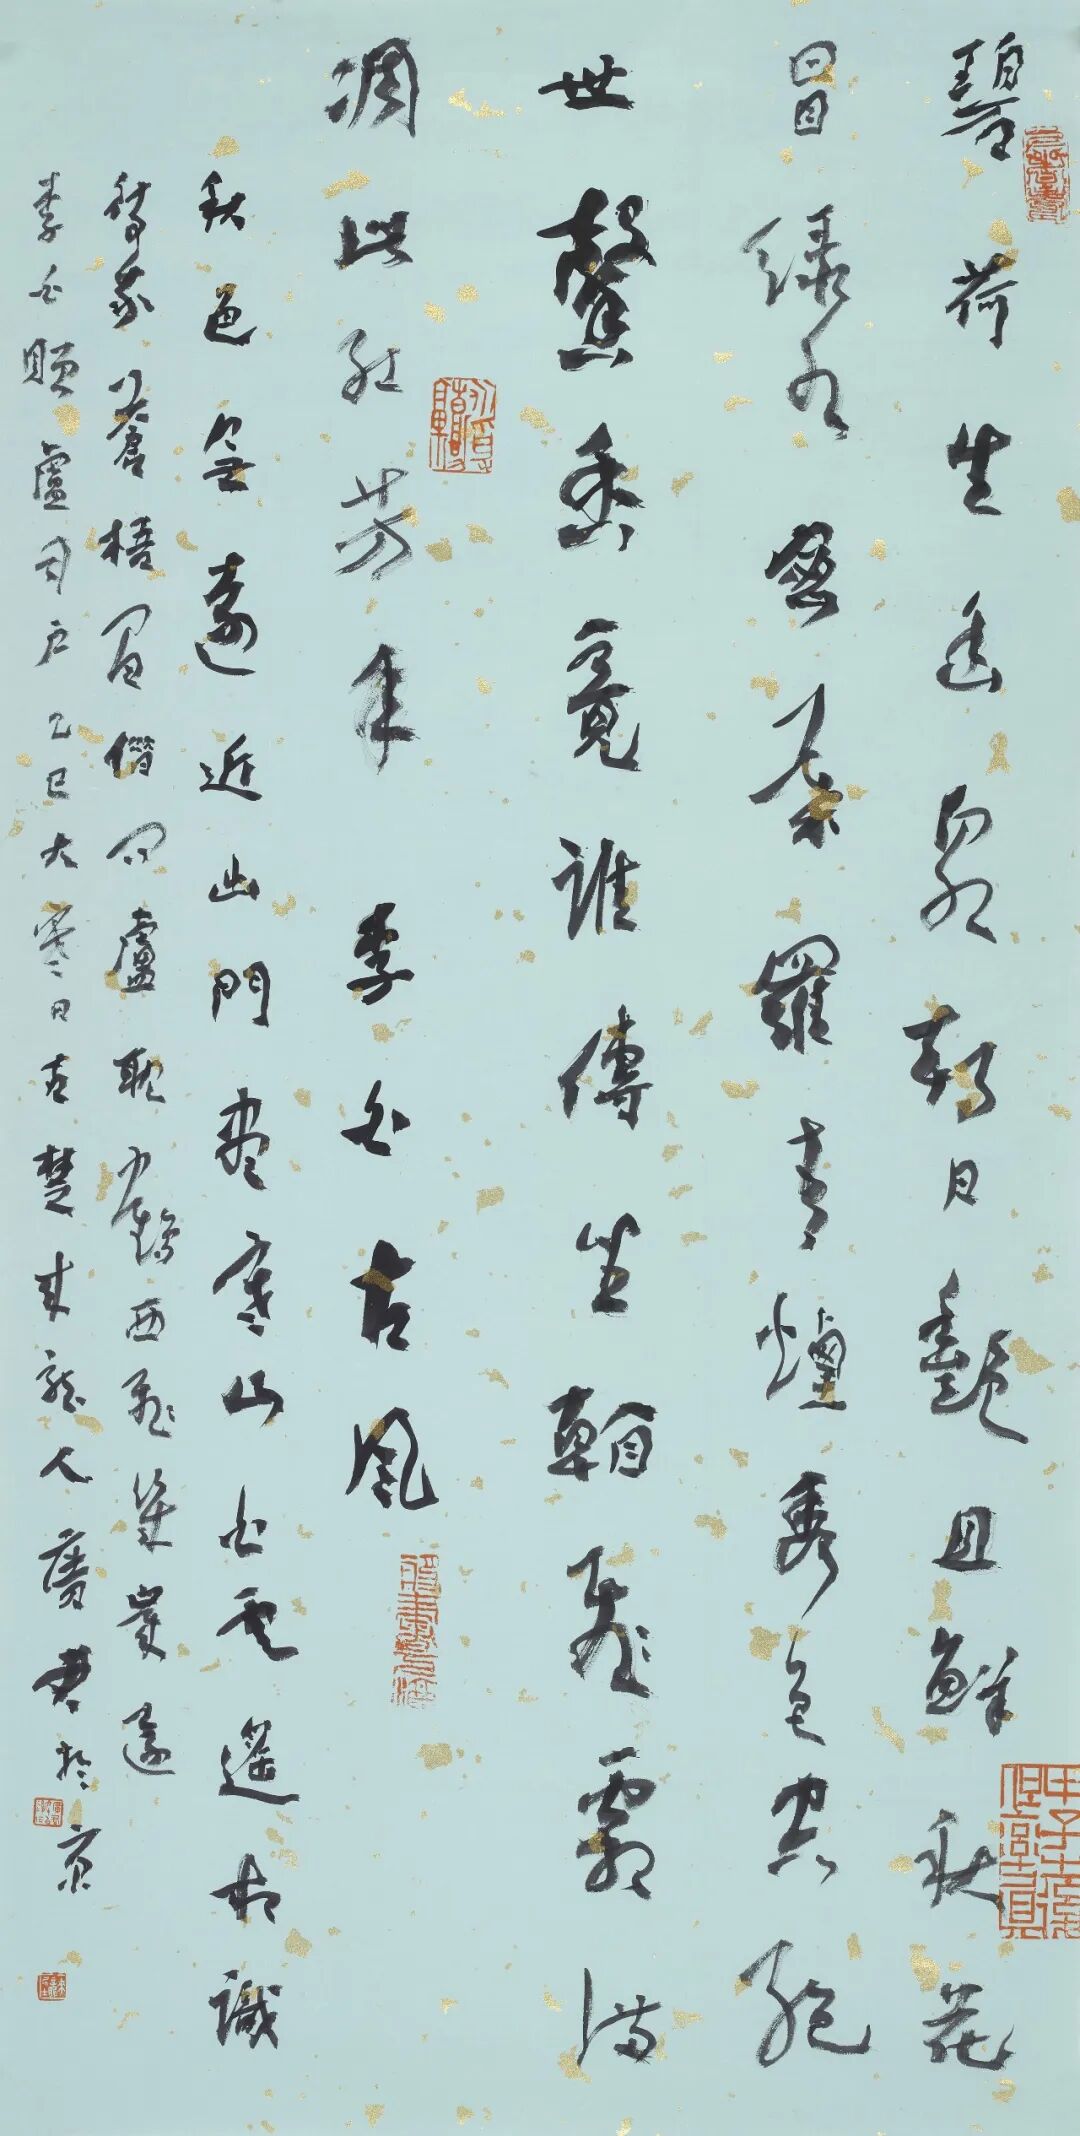 碧荷生幽泉朝日艷且鮮秋花
冒綠水密葉羅青煙秀色空絕
世馨香竟誰傳坐看飛霜滿
凋此紅芳年 李白古風
秋色無遠近出門盡寒山白雲遙相識
待我蒼梧間借問盧耽鶴西飛幾歲還
李白贈盧司戶乙巳大寒日古楚來龍人廣君於京